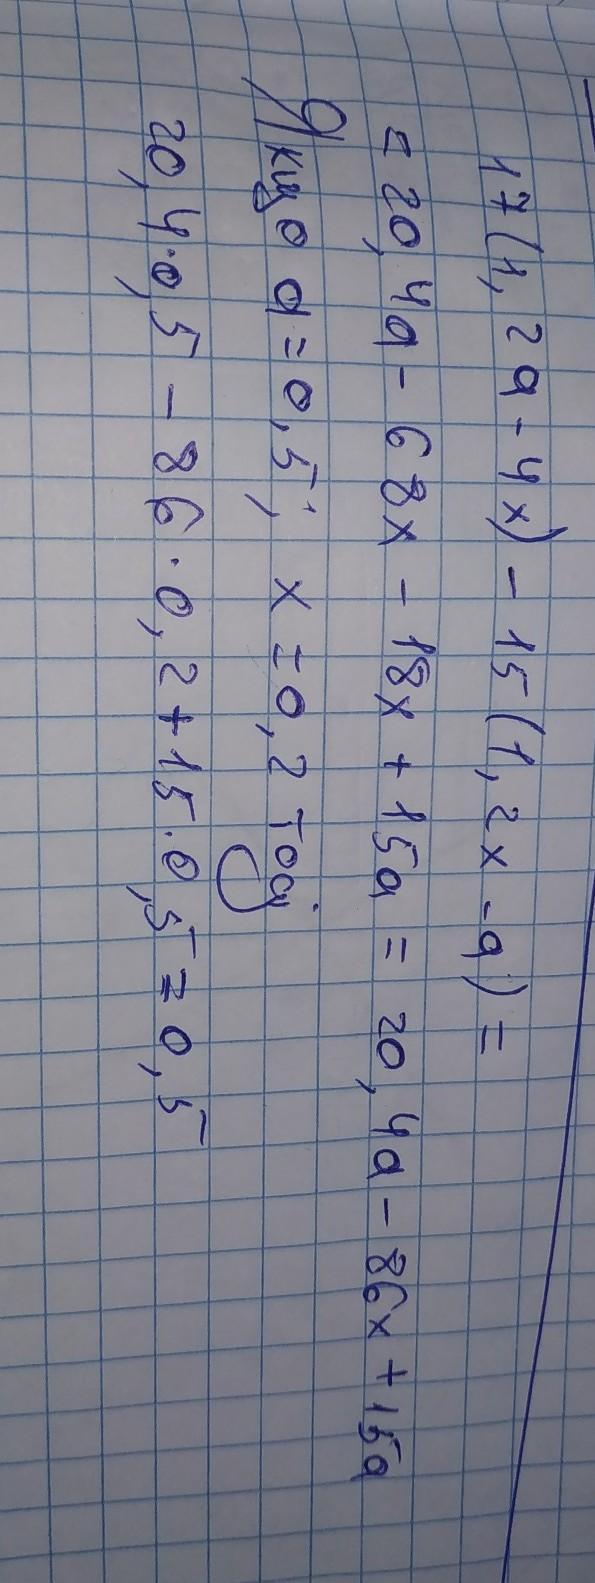 17(1,2a-4x)-15(1,2x-a)=
=20,4a-68x-18x+15a=20,4a-86x+15a
Якщо a=0,5; x=0,2 тоді
20,4·0,5-86·0,2+15·0,5=0,5